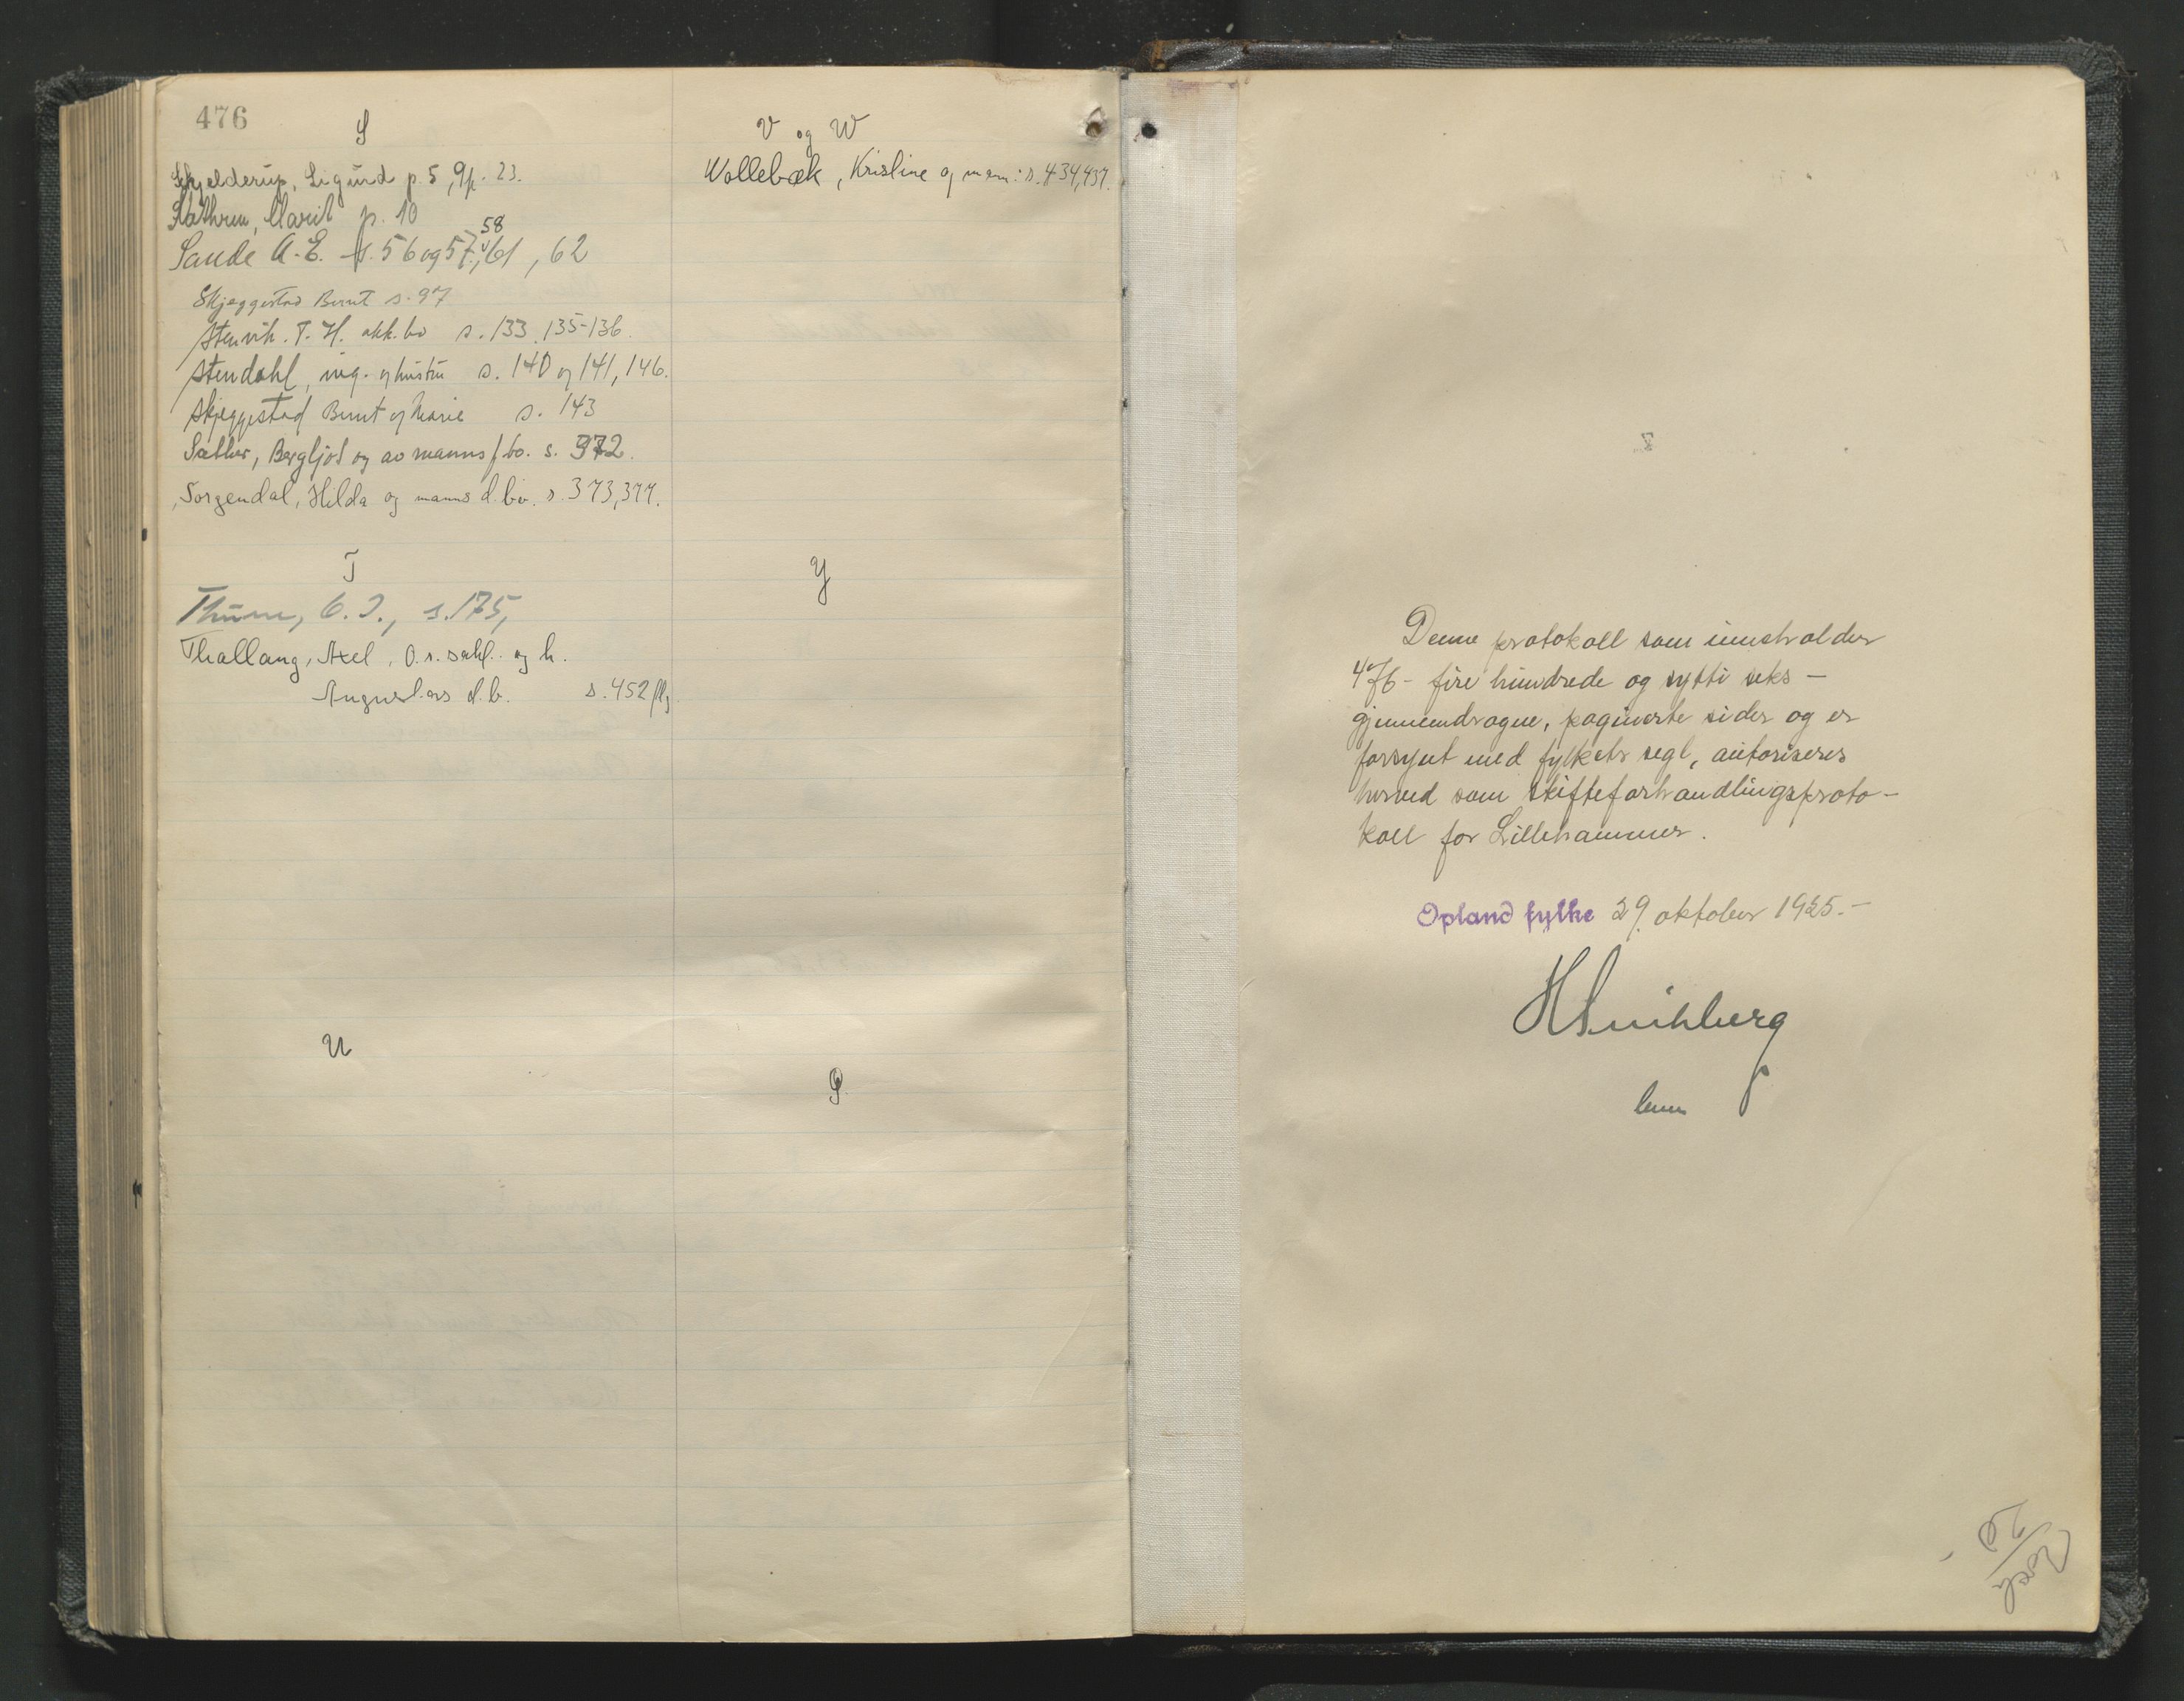 476
S
Skjelderup, Sigurd p. 5, 9, p. 23.
Sæthren, Marit p. 10
58
Sande A. E. s. 56 og 57, 61, 62
Skjeggestad Bernt s. 97
Stenvik. T. H. akk. bo s. 133. 135-136.
Stendahl, ing. og hustru s. 140 og 141, 146.
Skjeggestad Bernt og Marie s. 143
Sæther, Bergljot og av manns f. bo. s. 372.
Sorgendal, Hilda og manns d. bo. s. 373, 377.
T
Thune, O. J., s. 175,
Thallaug, Axel, O.r.sakf. og h.
Augusta's d.b. s. 452 flg
U
V og W
Wollebæk, Kristine og mann: s. 434, 437.
Y
Ø
Denne protokoll som inneholder
476 - fire hundrede og sytti seks -
gjennemdragne, paginerte sider og er
forsynt med fylkets segl, autoriseres
herved som skifteforhandlingsproto-
koll for Lillehammer.
Opland fylke 29. oktober 1925.-